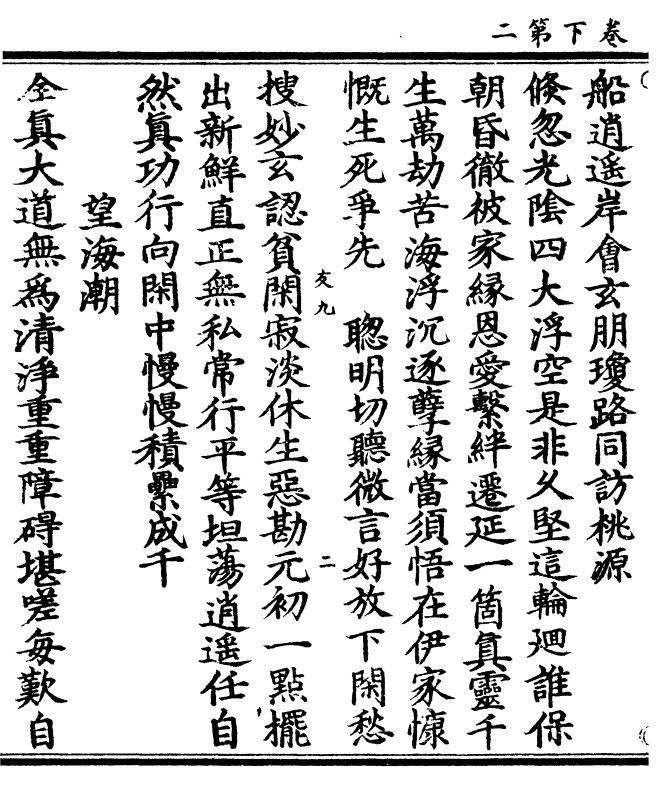 卷下第二
船逍遥岸會玄朋瓊路同訪桃源
倏忽光陰四大浮空是非久堅這輪廻誰保
朝昏徹被家緣恩愛繫絆遷延一箇真靈千
生萬劫苦海浮沉逐孽緣當須悟在伊家慷
慨生死爭先　聰明切聽微言好放下閑愁
友九
二
搜妙玄認貧閑寂淡休生惡勘元初一點擺
出新鮮直正無私常行平等坦蕩逍遥任自
然真功行向閑中慢慢積纍成千
望海潮
全真大道無爲清淨重重障碍堪嗟每歎自